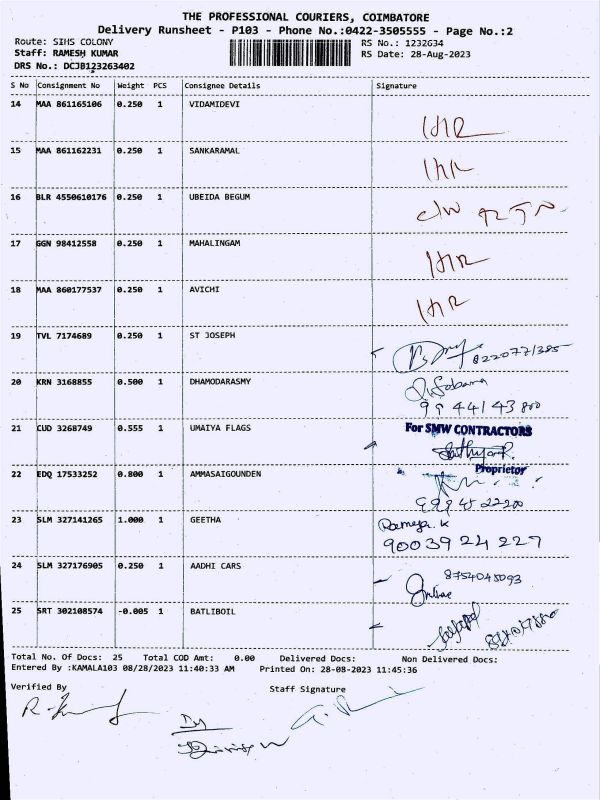 THE PROFESSIONAL COURIERS, COIMBATORE
Delivery Runsheet - P103 - Phone No.:0422-3505555 - Page No.:2
Route: SIHS COLONY RS No.: 1232634
Staff: RAMESH KUMAR RS Date: 28-Aug-2023
DRS No.: DCJB123263402
S No Consignment No Weight PCS Consignee Details Signature
14 MAA 861165106 0.250 1 VIDAMIDEVI
15 MAA 861162231 0.250 1 SANKARAMAL
16 BLR 4550610176 0.250 1 UBEIDA BEGUM
17 GGN 98412558 0.250 1 MAHALINGAM
18 MAA 860177537 0.250 1 AVICHI
19 TVL 7174689 0.250 1 ST JOSEPH
20 KRN 3168855 0.500 1 DHAMODARASMY
99 44143 800
21 CUD 3268749 0.555 1 UMAIYA FLAGS For SMW CONTRACTORS
Proprietor
22 EDQ 17533252 0.800 1 AMMASAIGOUNDEN
23 SLM 327141265 1.000 1 GEETHA Rameya. K
90039 24 227
24 SLM 327176905 0.250 1 AADHI CARS 8754045093
25 SRT 302108574 -0.005 1 BATLIBOIL
Total No. Of Docs: 25 Total COD Amt: 0.00 Delivered Docs: Non Delivered Docs:
Entered By :KAMALA103 08/28/2023 11:40:33 AM Printed On: 28-08-2023 11:45:36
Verified By Staff Signature